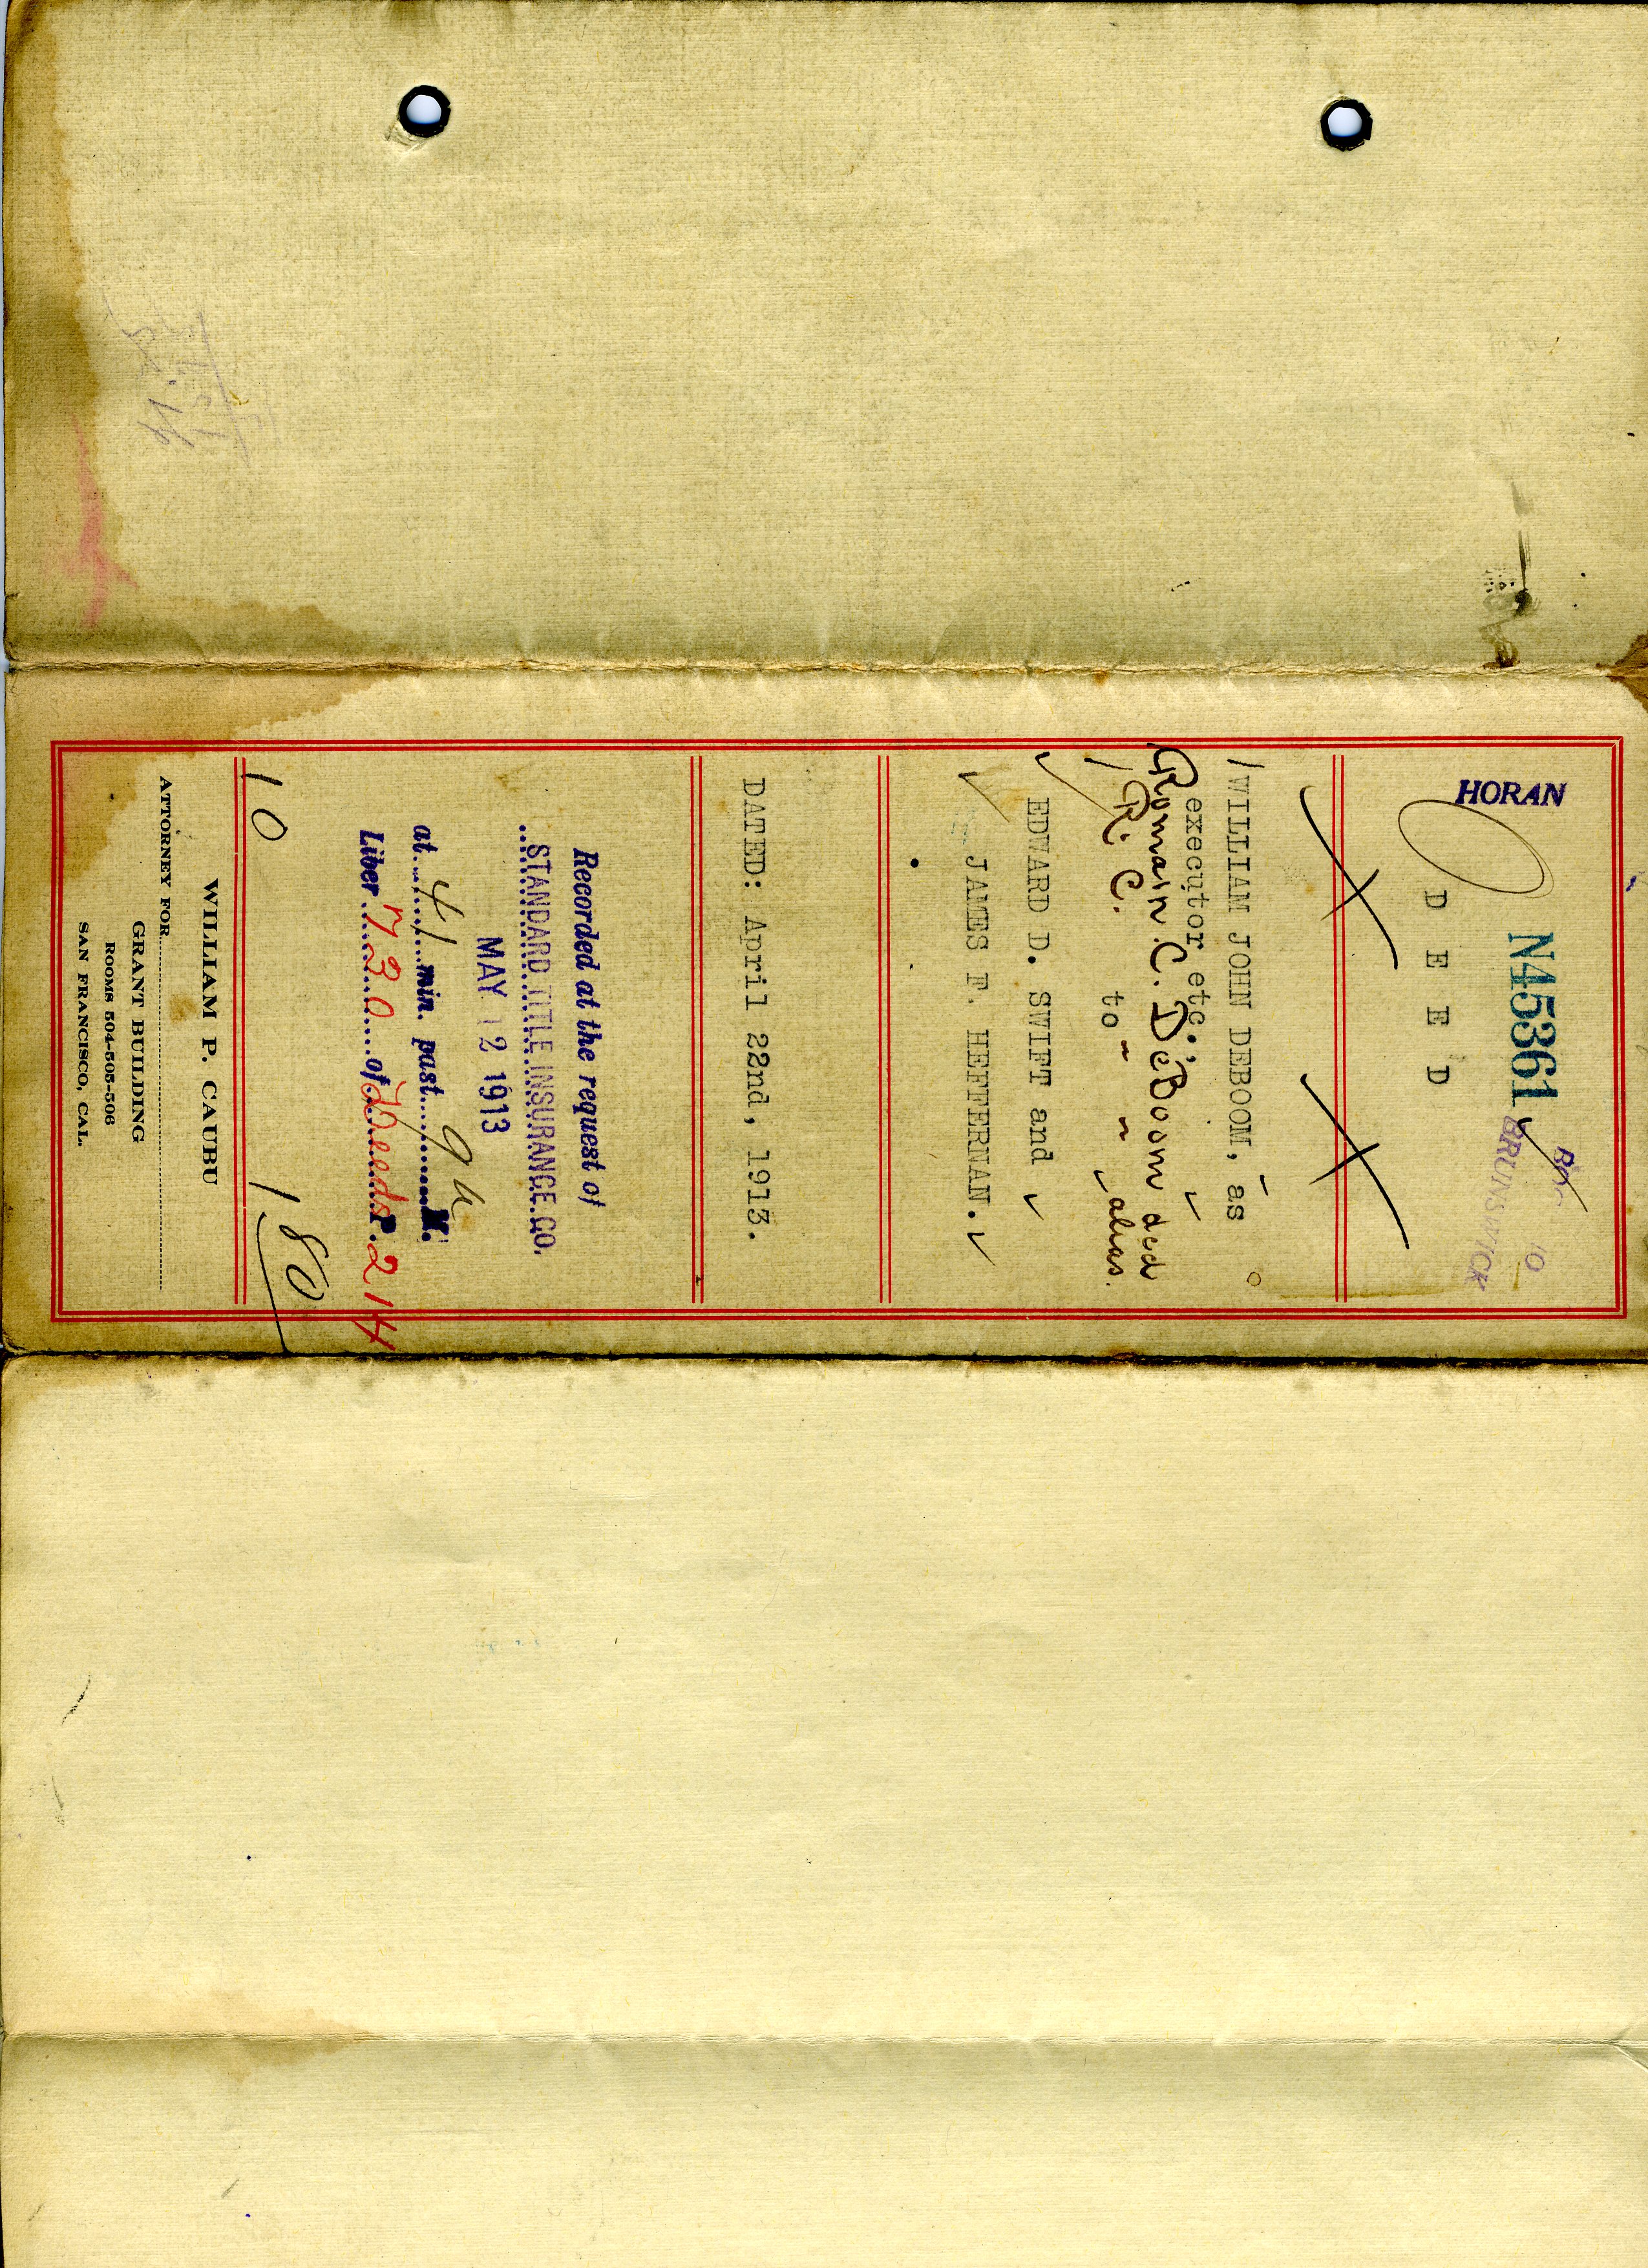 N45361
BRUNSWICK
10
HORAN
DEED
WILLIAM JOHN DEBOOM, as
executor etc.,
Romain C. DeBoom dcd
R. C. " " alias.
to
EDWARD D. SWIFT and
JAMES F. HEFFERNAN.
DATED: April 22nd, 1913.
Recorded at the request of
STANDARD TITLE INSURANCE CO.
MAY 12 1913
at 41 min. past 9 a M.
Liber 730 of Deeds P. 214
10 1 80
WILLIAM P. CAUBU
ATTORNEY FOR
GRANT BUILDING
ROOMS 504-505-506
SAN FRANCISCO, CAL.